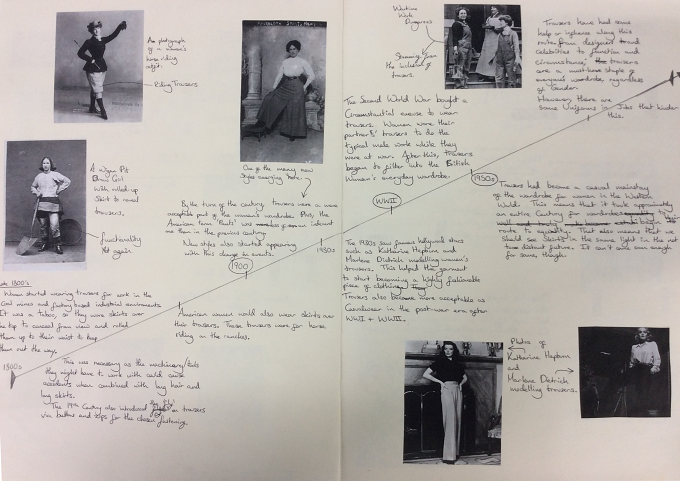 A photograph
of a women's
horse riding
outfit.
Riding Trousers
A Wigan Pit
Brow Girl
with rolled-up
Skirt to reveal
trousers.
functionality
Yet again
One of the many new
Styles emerging
By the turn of the century, trousers were a more
acceptable part of the women's wardrobe. Plus, the
American term 'Pants' was
than in the previous century.
New styles also started appearing
with this change in events.
1800's
Women started wearing trousers for work in the
Coal mines and factory based industrial environments
It was a taboo, so they wore skirts over
the top to conceal from view and rolled
them up to their waist to keep
them out the way.
1800s
This was necessary as the machinery/tools
they might have to work with could cause
accidents when combined with long hair and
long skirts.
The 19th Century also introduced on trousers
via buttons and zips for the chosen fastening.
1900
American women would also wear skirts over
their trousers. These trousers were for horse
riding on the ranches.
1930s
Wartime
Work
Dungarees
Showing
the wideness of
trousers.
The Second World War bought a
Circumstantial excuse to wear
trousers. Women wore their
partners' trousers to do the
typical male work while they
were at war. After this, trousers
began to filter into the British
Women's everyday wardrobe.
WWII
1950s
The 1930s saw famous hollywood stars
such as Katharine Hepburn and
Marlene Dietrich modelling women's
trousers. This helped the garment
to start becoming a highly fashionable
piece of clothing.
Trousers also became more acceptable as
Casualwear in the post-war era after
WWI + WWII.
Trousers have had some
help or influence along this
route from designers and
celebrities to function and
circumstance, trousers
are a must-have staple of
everyones wardrobe regardless
of Gender.
However, there are
some Uniforms in Jobs that hinder
this.
Trousers had become a casual mainstay
of the wardrobe for women in the Western
World. This means that it took approximately
an entire Century for
route to equality. That also means that we
should see Skirts in the same light in the not
too distant future. It can't come soon enough
for some though.
Photos of
Katharine Hepburn
and
Marlene Dietrich
modelling trousers.